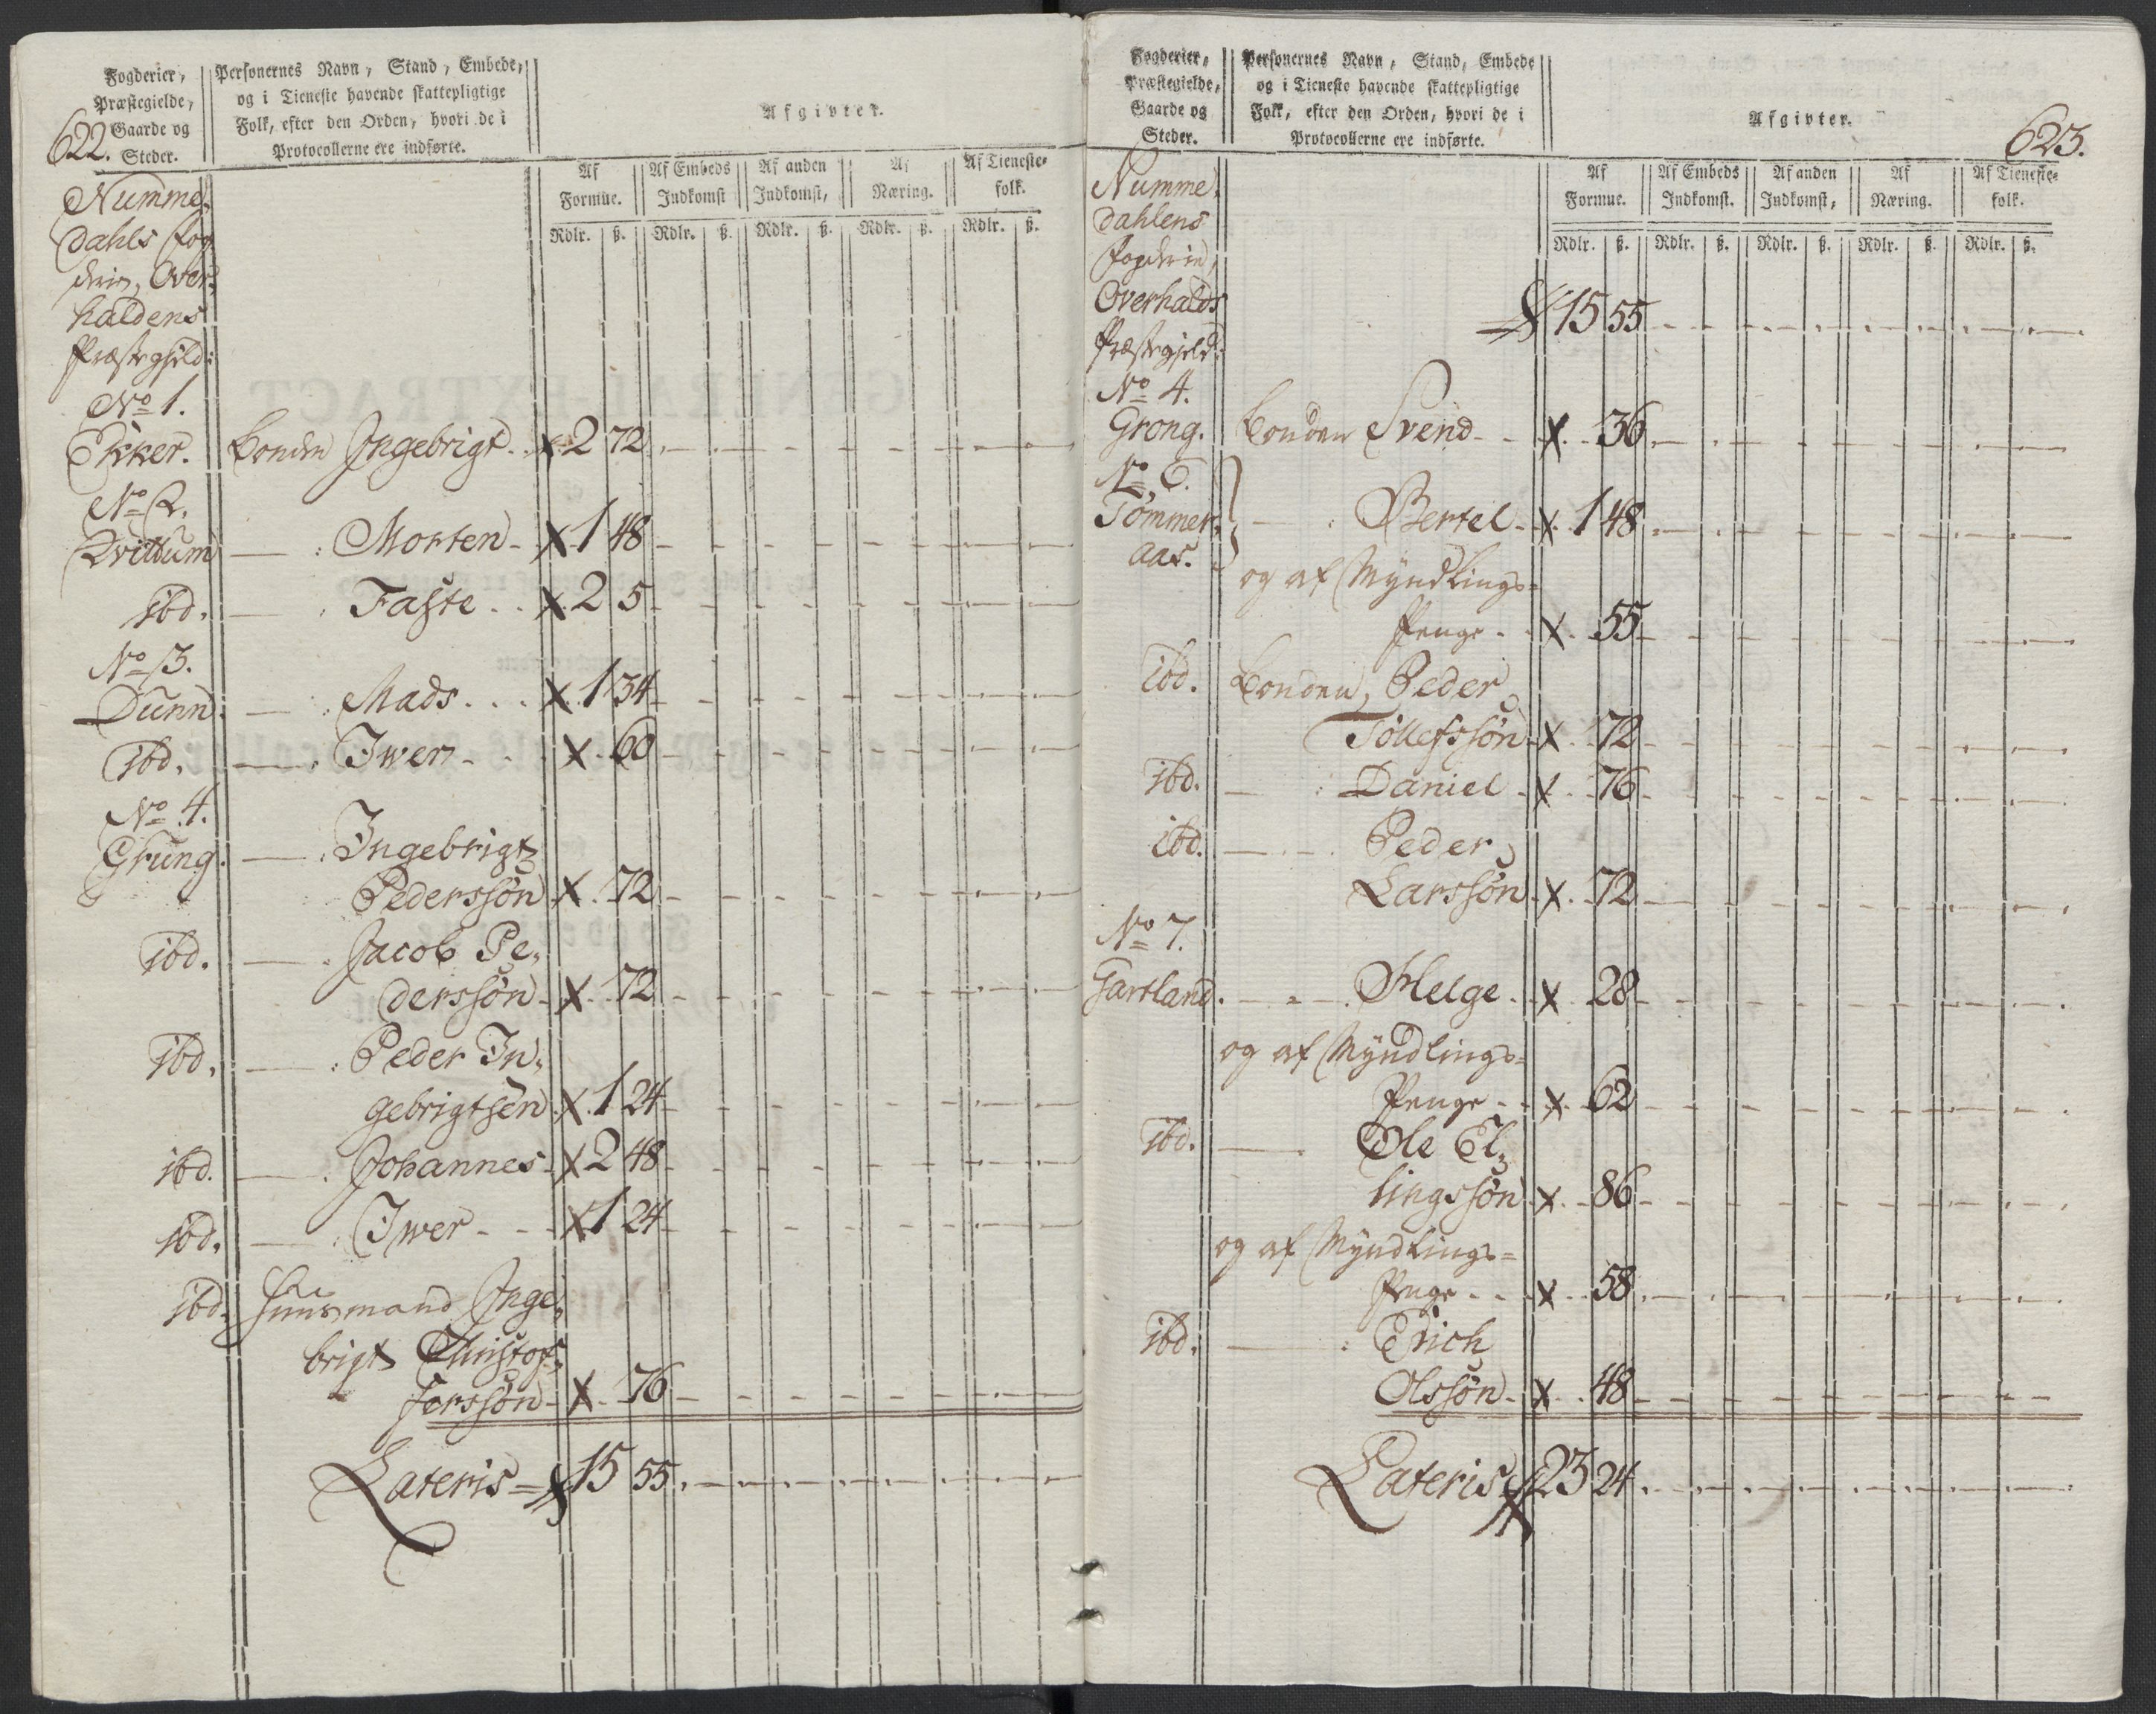 622.
Fogderier,
Præstegielde,
Gaarde og
Steder.
Personernes Navn, Stand, Embede,
og i Tieneste havende skattepligtige
Folk, efter den Orden, hvori de i
Protocollerne ere indførte.
Afgivter.
Af Formue. Af Embeds Indkomst Af anden Indkomst, Af Næring. Af Tieneste- folk.
Rdlr. ß. Rdlr. ß. Rdlr. ß. Rdlr. ß. Rdlr. ß.
Numme-
dahls Fog
derie, Over-
haldens
Præstegjeld:
No 1.
Ekker. Bonden Ingebrigt . x 2 72
No 2.
Qvittum — : Morten - x 1 48
ibd. — : Faste . . x 2 5
No 3.
Dunn. — : Mads . . . x 1 34
ibd. — : Iwer - . . x . 60
No 4.
Grung. — : Ingebrigt
Pederssøn x . 72
ibd. — . Jacob Pe-
derssøn - x . 72
ibd. — : Peder In-
gebrigtsen x 1 24
ibd. — . Johannes - x 2 48
ibd. — : Iwer - - - x 1 24
ibd. Huusmand Inge-
brigt Christof-
ferssøn - x . 76
Lateris = 15 55
623.
Fogderier,
Præstegielde,
Gaarde og
Steder.
Personernes Navn, Stand, Embede
og i Tieneste havende skattepligtige
Folk, efter den Orden, hvori de i
Protocollerne ere indførte.
Afgivter.
Af Formue. Af Embeds Indkomst. Af anden Indkomst, Af Næring. Af Tieneste- folk.
Rdlr. ß. Rdlr. ß. Rdlr. ß. Rdlr. ß. Rdlr. ß.
Numme-
dahlens
Fogderie,
Overhalds 15 55
Præstegjeld:
No 4.
Grong. Bonden Svend - - x . 36
No 6.
Tømmer- — : Bertel - x 1 48
aas.
og af Myndlings=
Penge - . x . 55
ibd. Bonden, Peder
Tollefssøn x . 72
ibd. — : Daniel . x . 76
ibd. — . - Peder
Larssøn . x . 72
No 7.
Gartland. — . Helge . . x 28
og af Myndlings=
Penge - . x . 62
ibd. — . Ole El-
lingssøn x . 86
og af Myndlings=
Penge . . . x . 58
ibd. — : Erich
Olssøn . x . 48
Lateris 23 24